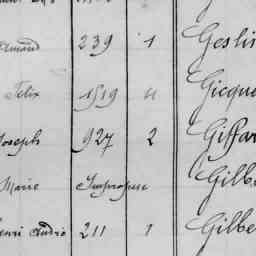 239 1 Gesli
Felix 1519 4 Gicque
Joseph 927 2 Giffar
Marie Impropre Gilb
Henri André 211 1 Gilbe